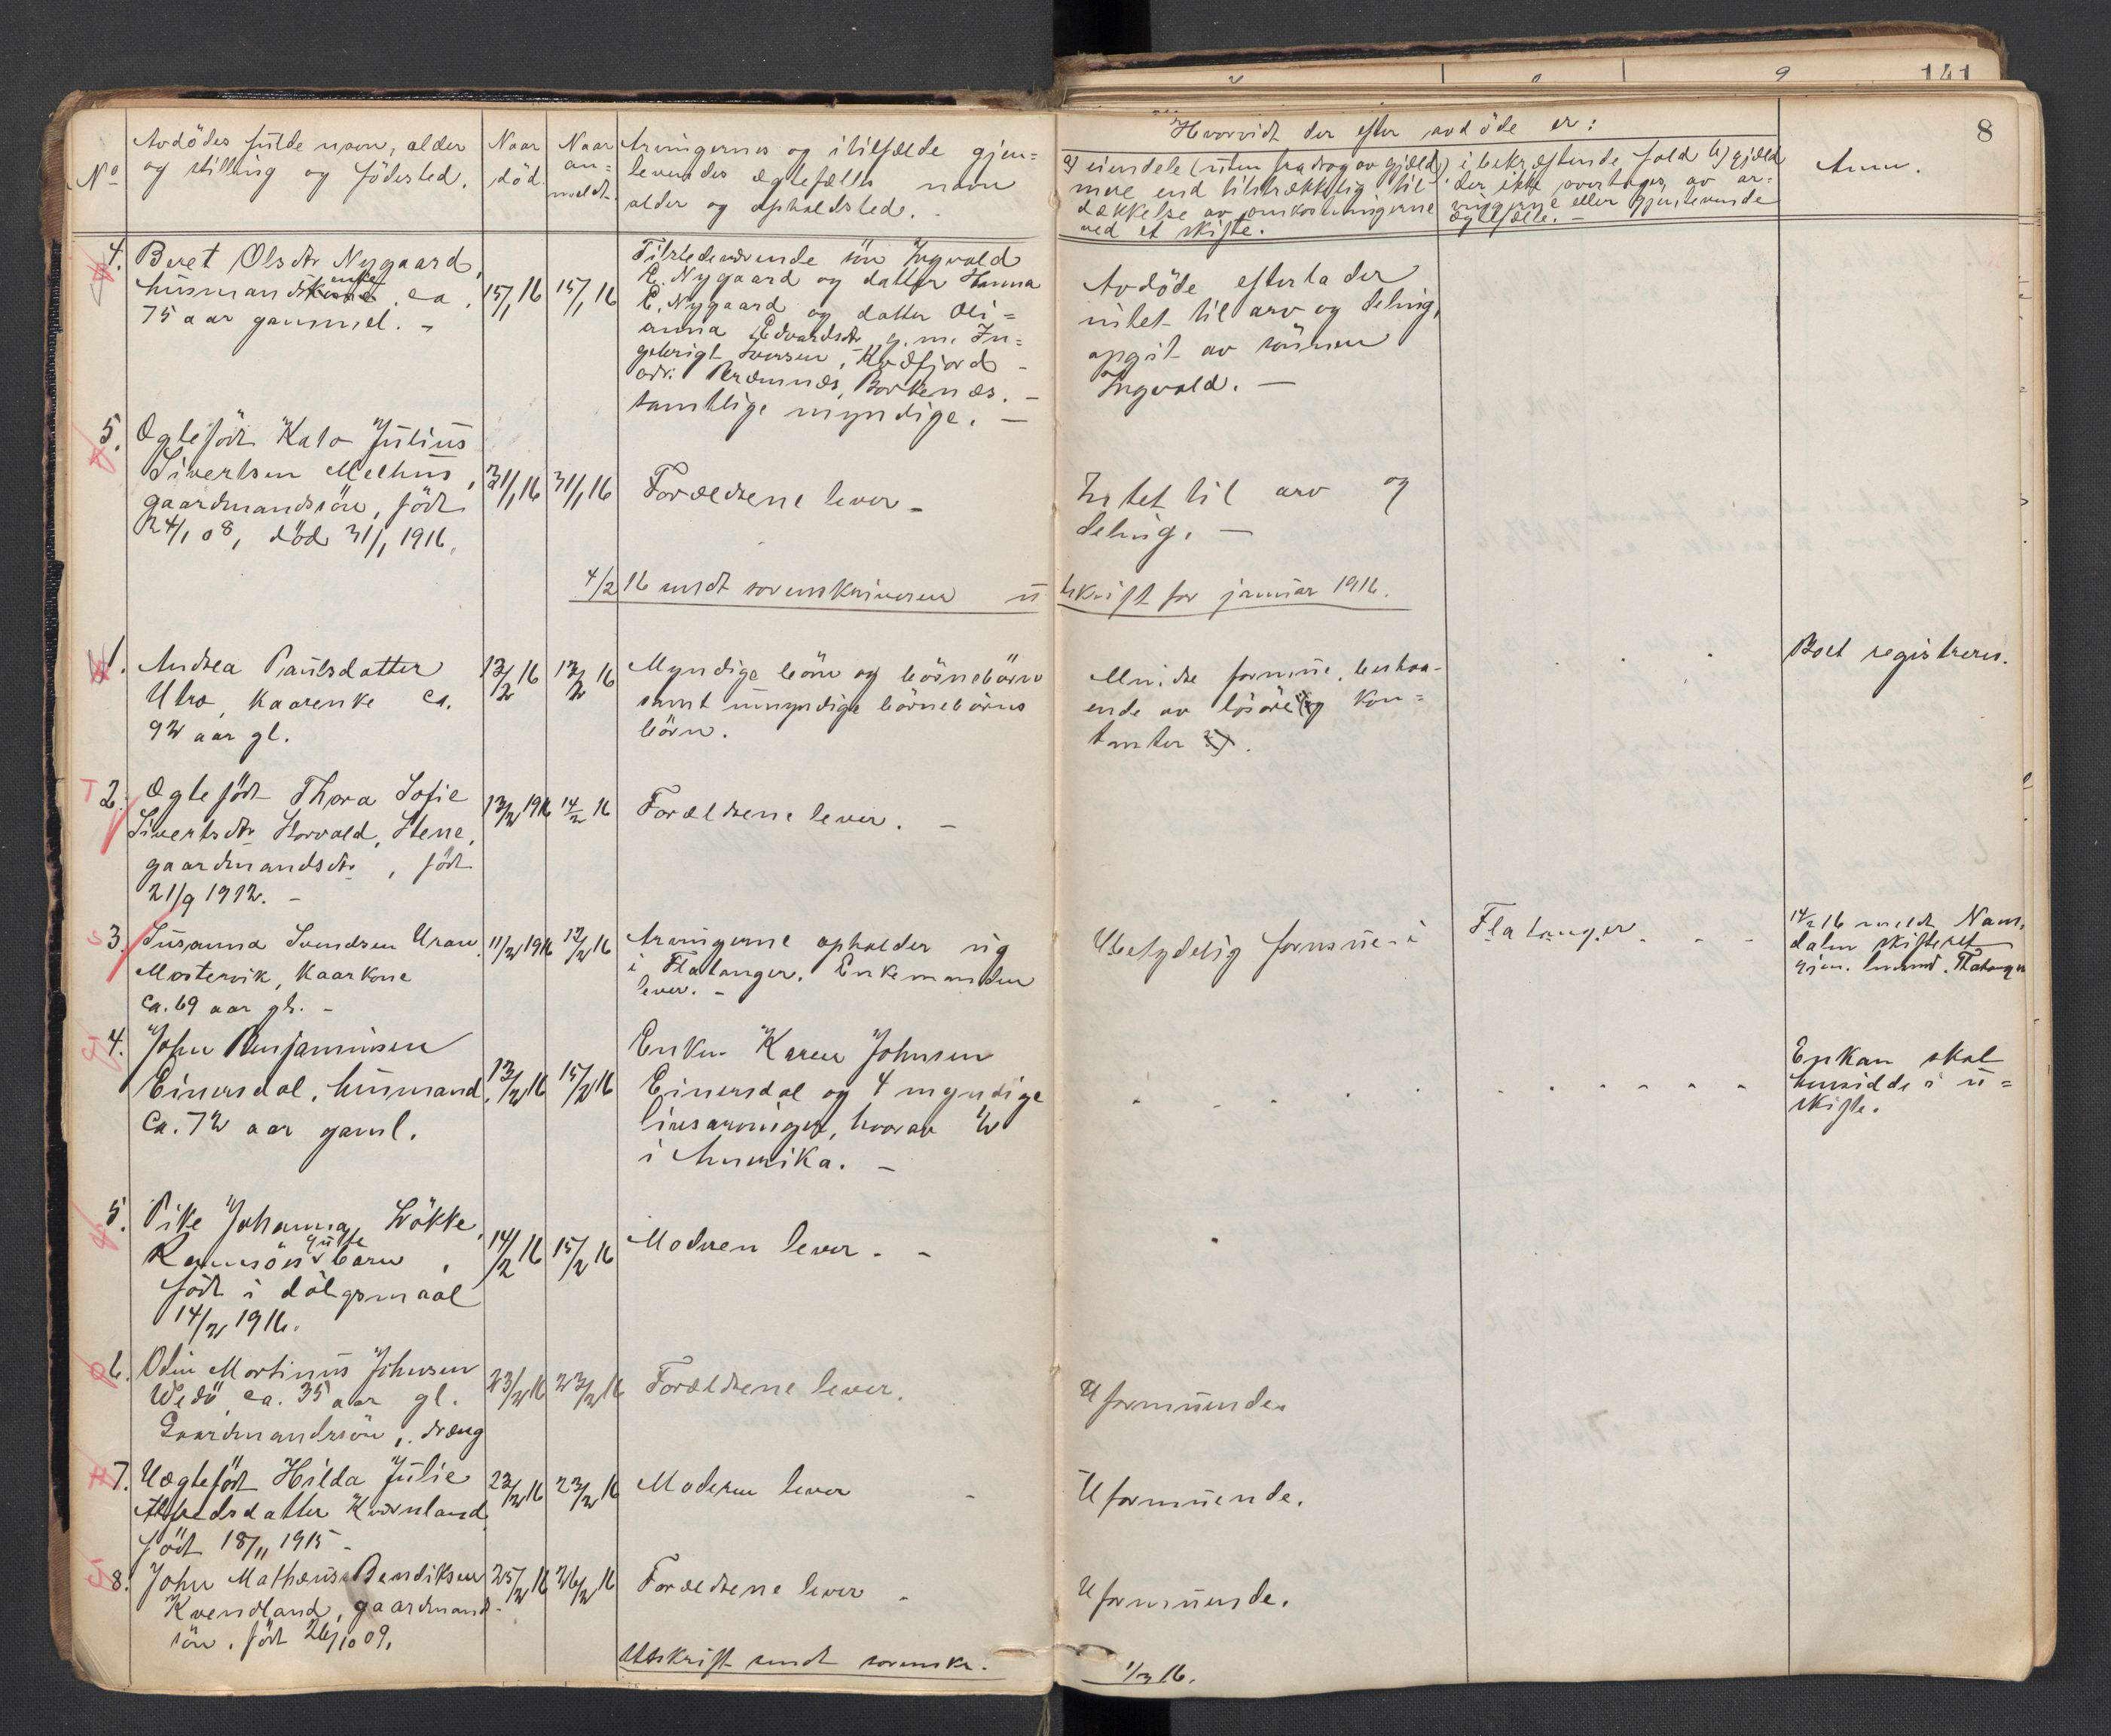 141
8
No
Avdödes fulde navn, alder
og stilling og födested.
Naar
död.
Naar
an=
meldt.
Arvingernes og i tilfælde gjen=
levendes ægtefælles navn
alder og opholdsted.
Hvorvidt der efter avdöde er:
a) eiendele (uten fradrag av gjæld)
mere end tilstrækkelig til
dækkelse av omkostningerne
ved et skifte.
i bekræftende fald b) gjæld
der ikke overtages av ar=
vingerne eller gjenlevende
ægtefælle.
Anm.
4.
Beret Olsdtr Nygaard,
husmandsenke, ca.
75 aar gammel. -
15/1 16
15/1 16
Tilstedeværende sön Ingvald
E. Nygaard og datter Hanna
E. Nygaard og datter Oli=
anna Edvardsdtr g. m. In=
gebrigt Iversen, Kvæfjord -
adr. Borkenæs. -
samtlige myndige. -
Avdöde efterlader
intet til arv og deling,
opgit av sönnen
Ingvald. -
5.
Ægtefödt Kato Julius
Sivertsen Melhus,
gaardmandssön, födt
24/1 08, död 31/1 1916.
31/1 16
31/1 16
Forældrene lever -
Intet til arv og
deling. -
4/2 16 sendt sorenskriveren utskrift for januar 1916.
1.
Andrea Paulsdatter
Utro, kaarenke ca.
92 aar gl.
12/2 16
12/2 16
Myndige börn og börnebörn
samt umyndige börnebörns
börn.
Mindre formue, bestaa-
ende av lösöre og kon=
tanter.
Boet registreres.
2.
Ægtefödt Thora Sofie
Sivertsdtr Horvald, Stene,
gaardmandsdtr, födt
21/9 1912. -
13/2 1916
14/2 16
Forældrene lever. -
3.
Susanna Svendsen Uran
Mostervik, kaarkone
ca. 69 aar gl. -
11/2 1916
12/2 16
Arvingerne opholder sig
i Flatanger. Enkemanden
lever. -
Ubetydelig formue i
Flatanger
14/2 16 meldt Nam.
dalen skifteret
gjen. lensmd. Flatanger
4.
John Benjaminsen
Einersdal, husmand,
ca. 72 aar gaml.
13/2 16
15/2 16
Enken Karen Johnsen
Einersdal og 4 myndige
livsarvinger, hvorav 2
i Amerika. -
Enkan skal
hensidde i u=
skifte.
5.
Pike Johanna Lökke,
gutte
barn,
födt i dölgsmaal
14/2 1916.
14/2 16
15/2 16
Moderen lever. -
6.
Odin Martinus Johnsen
Wedö, ca. 35 aar gl.
Gaardmandssön, dræng
23/2 16
23/2 16
Forældrene lever.
Uformuende.
7.
Uægtefödt Hilda Julie
Alfredsdatter Kvernland,
födt 18/11 1915 -
23/2 16
23/2 16
Moderen lever -
Uformuende.
8.
John Mathæus Bendiksen
Kvendland, gaardmand-
sön, födt 26/10 09.
25/2 16
26/2 16
Forældrene lever -
Uformuende.
Utskrift sendt sorenskr. 1/3 16.